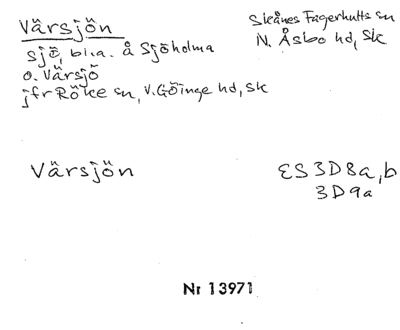 Värsjön
Skånes Fagerhults sn
N. Åsbo hd, Sk
sjö, bl.a. å Sjöholma
o. Värsjö
jfr Röke sn, V. Göinge hd, Sk
Värsjön
ES 3D8a,b
3D9a
Nr 13971